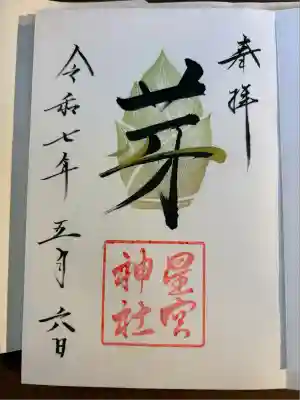 奉拝
芽
星宮
神社
令和七年五月六日